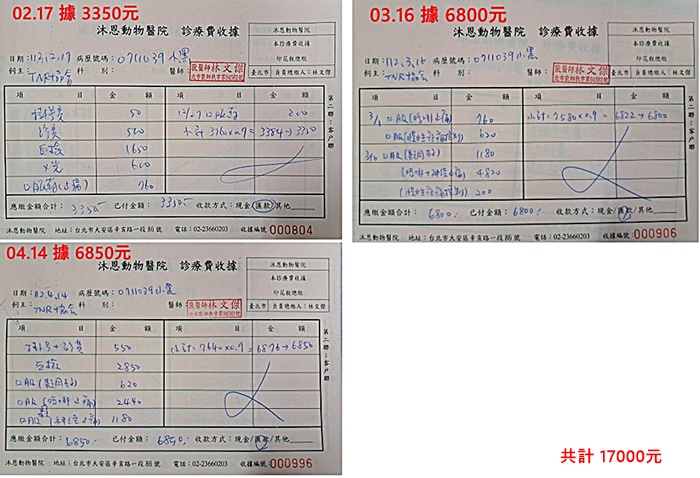 02.17 據 3350元
沐恩動物醫院 診療費收據
沐恩動物醫院
本診療費收據
印花稅總繳
臺北市 負責總繳人：林文傑
日期：112.2.17 病歷號碼：0711039 小黑
飼主：TNR協會 科別： 醫師：獸醫師林文傑
項目 金額 項目 金額
掛號費 50
診費 500 小計 3760×0.9=3384→3350
血檢 1650
X光 600
口服藥(止痛) 760
應繳金額合計：3350- 已付金額：3350- 收款方式：現金/匯款/其他
沐恩動物醫院 地址：台北市大安區辛亥路一段86號 電話：02-23660203 收據編號：000804
第二聯：客戶聯
03.16 據 6800元
沐恩動物醫院 診療費收據
沐恩動物醫院
本診療費收據
印花稅總繳
臺北市 負責總繳人：林文傑
日期：112.3.16 病歷號碼：0711039 小黑
飼主：TNR協會 科別： 醫師：獸醫師林文傑
項目 金額 項目 金額
760 小計：7580×0.9=6822→6800
620
1180
4820
200
應繳金額合計：6800- 已付金額：6800- 收款方式：現金/匯款/其他
沐恩動物醫院 地址：台北市大安區辛亥路一段86號 電話：02-23660203 收據編號：000906
第二聯：客戶聯
04.14 據 6850元
沐恩動物醫院 診療費收據
沐恩動物醫院
本診療費收據
印花稅總繳
臺北市 負責總繳人：林文傑
日期：112.4.14 病歷號碼：0711039 小黑
飼主：TNR協會 科別： 醫師：獸醫師林文傑
項目 金額 項目 金額
掛號+診費 550 小計：7640×0.9=6876→6850
血檢 2850
口服 620
口服 2440
口服 1180
應繳金額合計：6850- 已付金額：6850- 收款方式：現金/匯款/其他
沐恩動物醫院 地址：台北市大安區辛亥路一段86號 電話：02-23660203 收據編號：000996
第二聯：客戶聯
共計 17000元